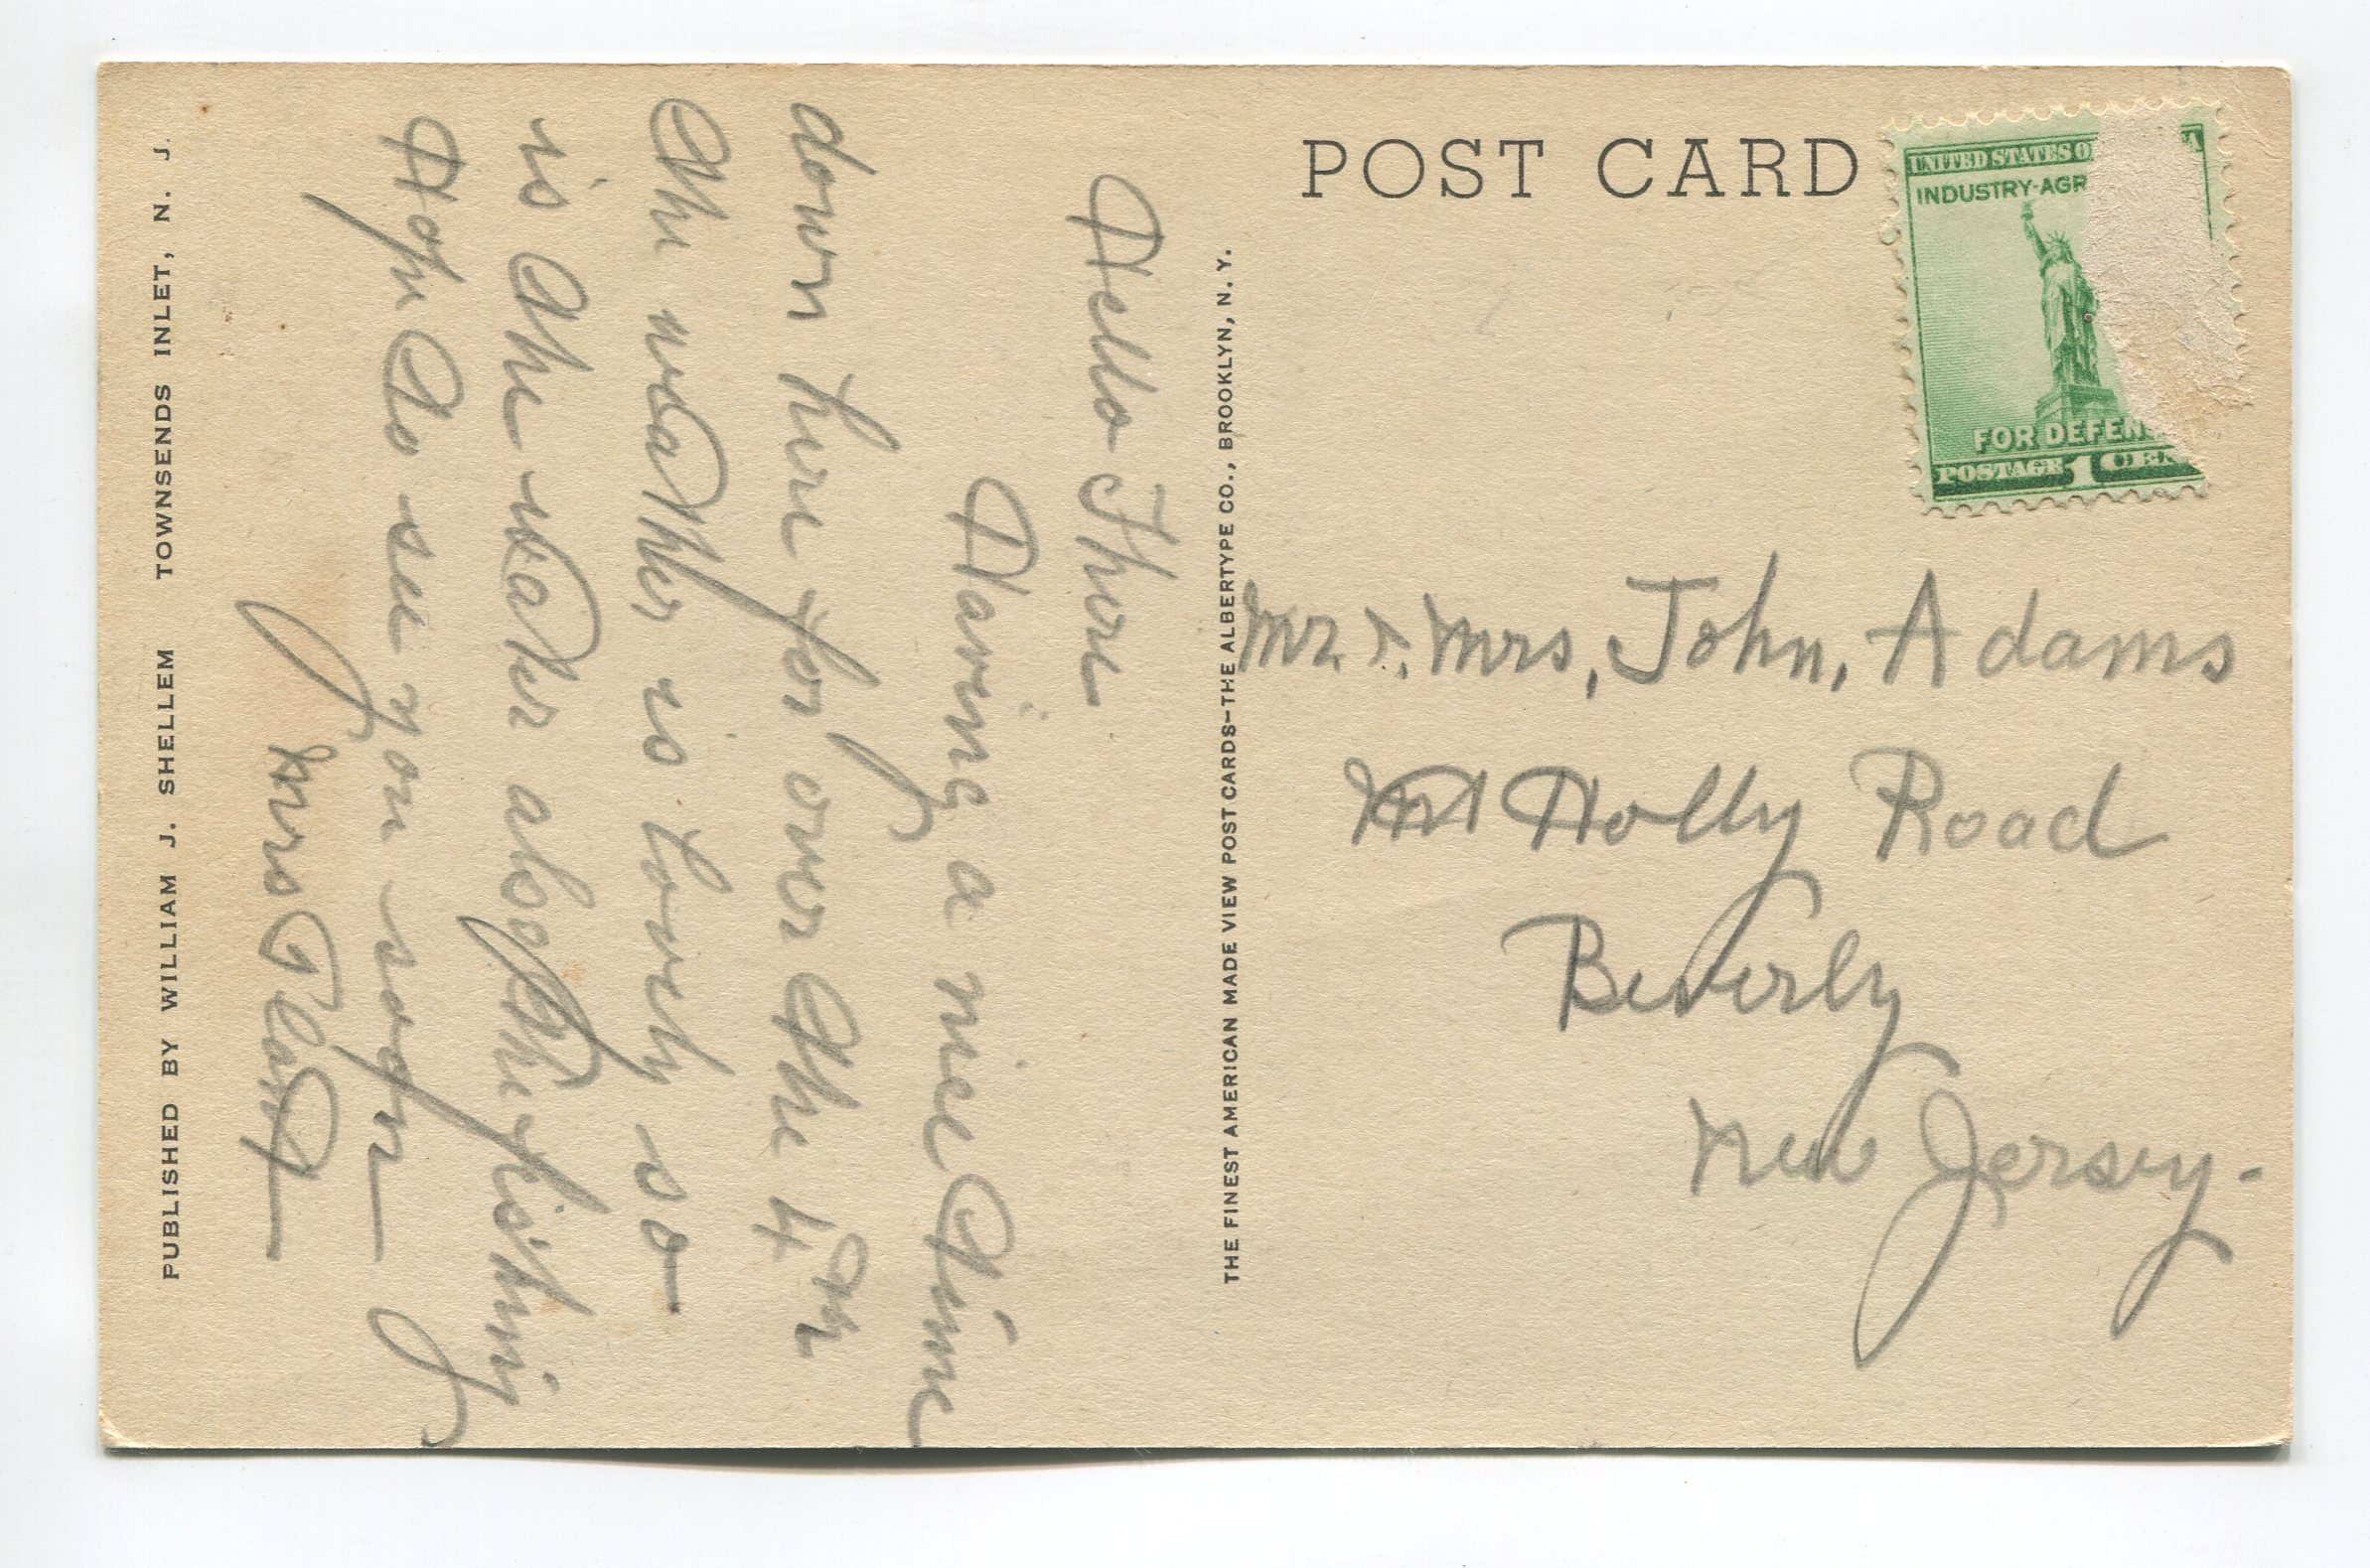 POST CARD
UNITED STATES O A
INDUSTRY-AGR
FOR DEFEN
POSTAGE 1 CEN
Hello There
Having a nice time
down here for over the 4th
The weather is lovely so
is the water also the fishing
Hope to see you soon
Mrs
Mr. & Mrs, John, Adams
Mt Holly Road
Beverly
New Jersey.
THE FINEST AMERICAN MADE VIEW POST CARDS—THE ALBERTYPE CO., BROOKLYN, N. Y.
PUBLISHED BY WILLIAM J. SHELLEM TOWNSENDS INLET, N. J.